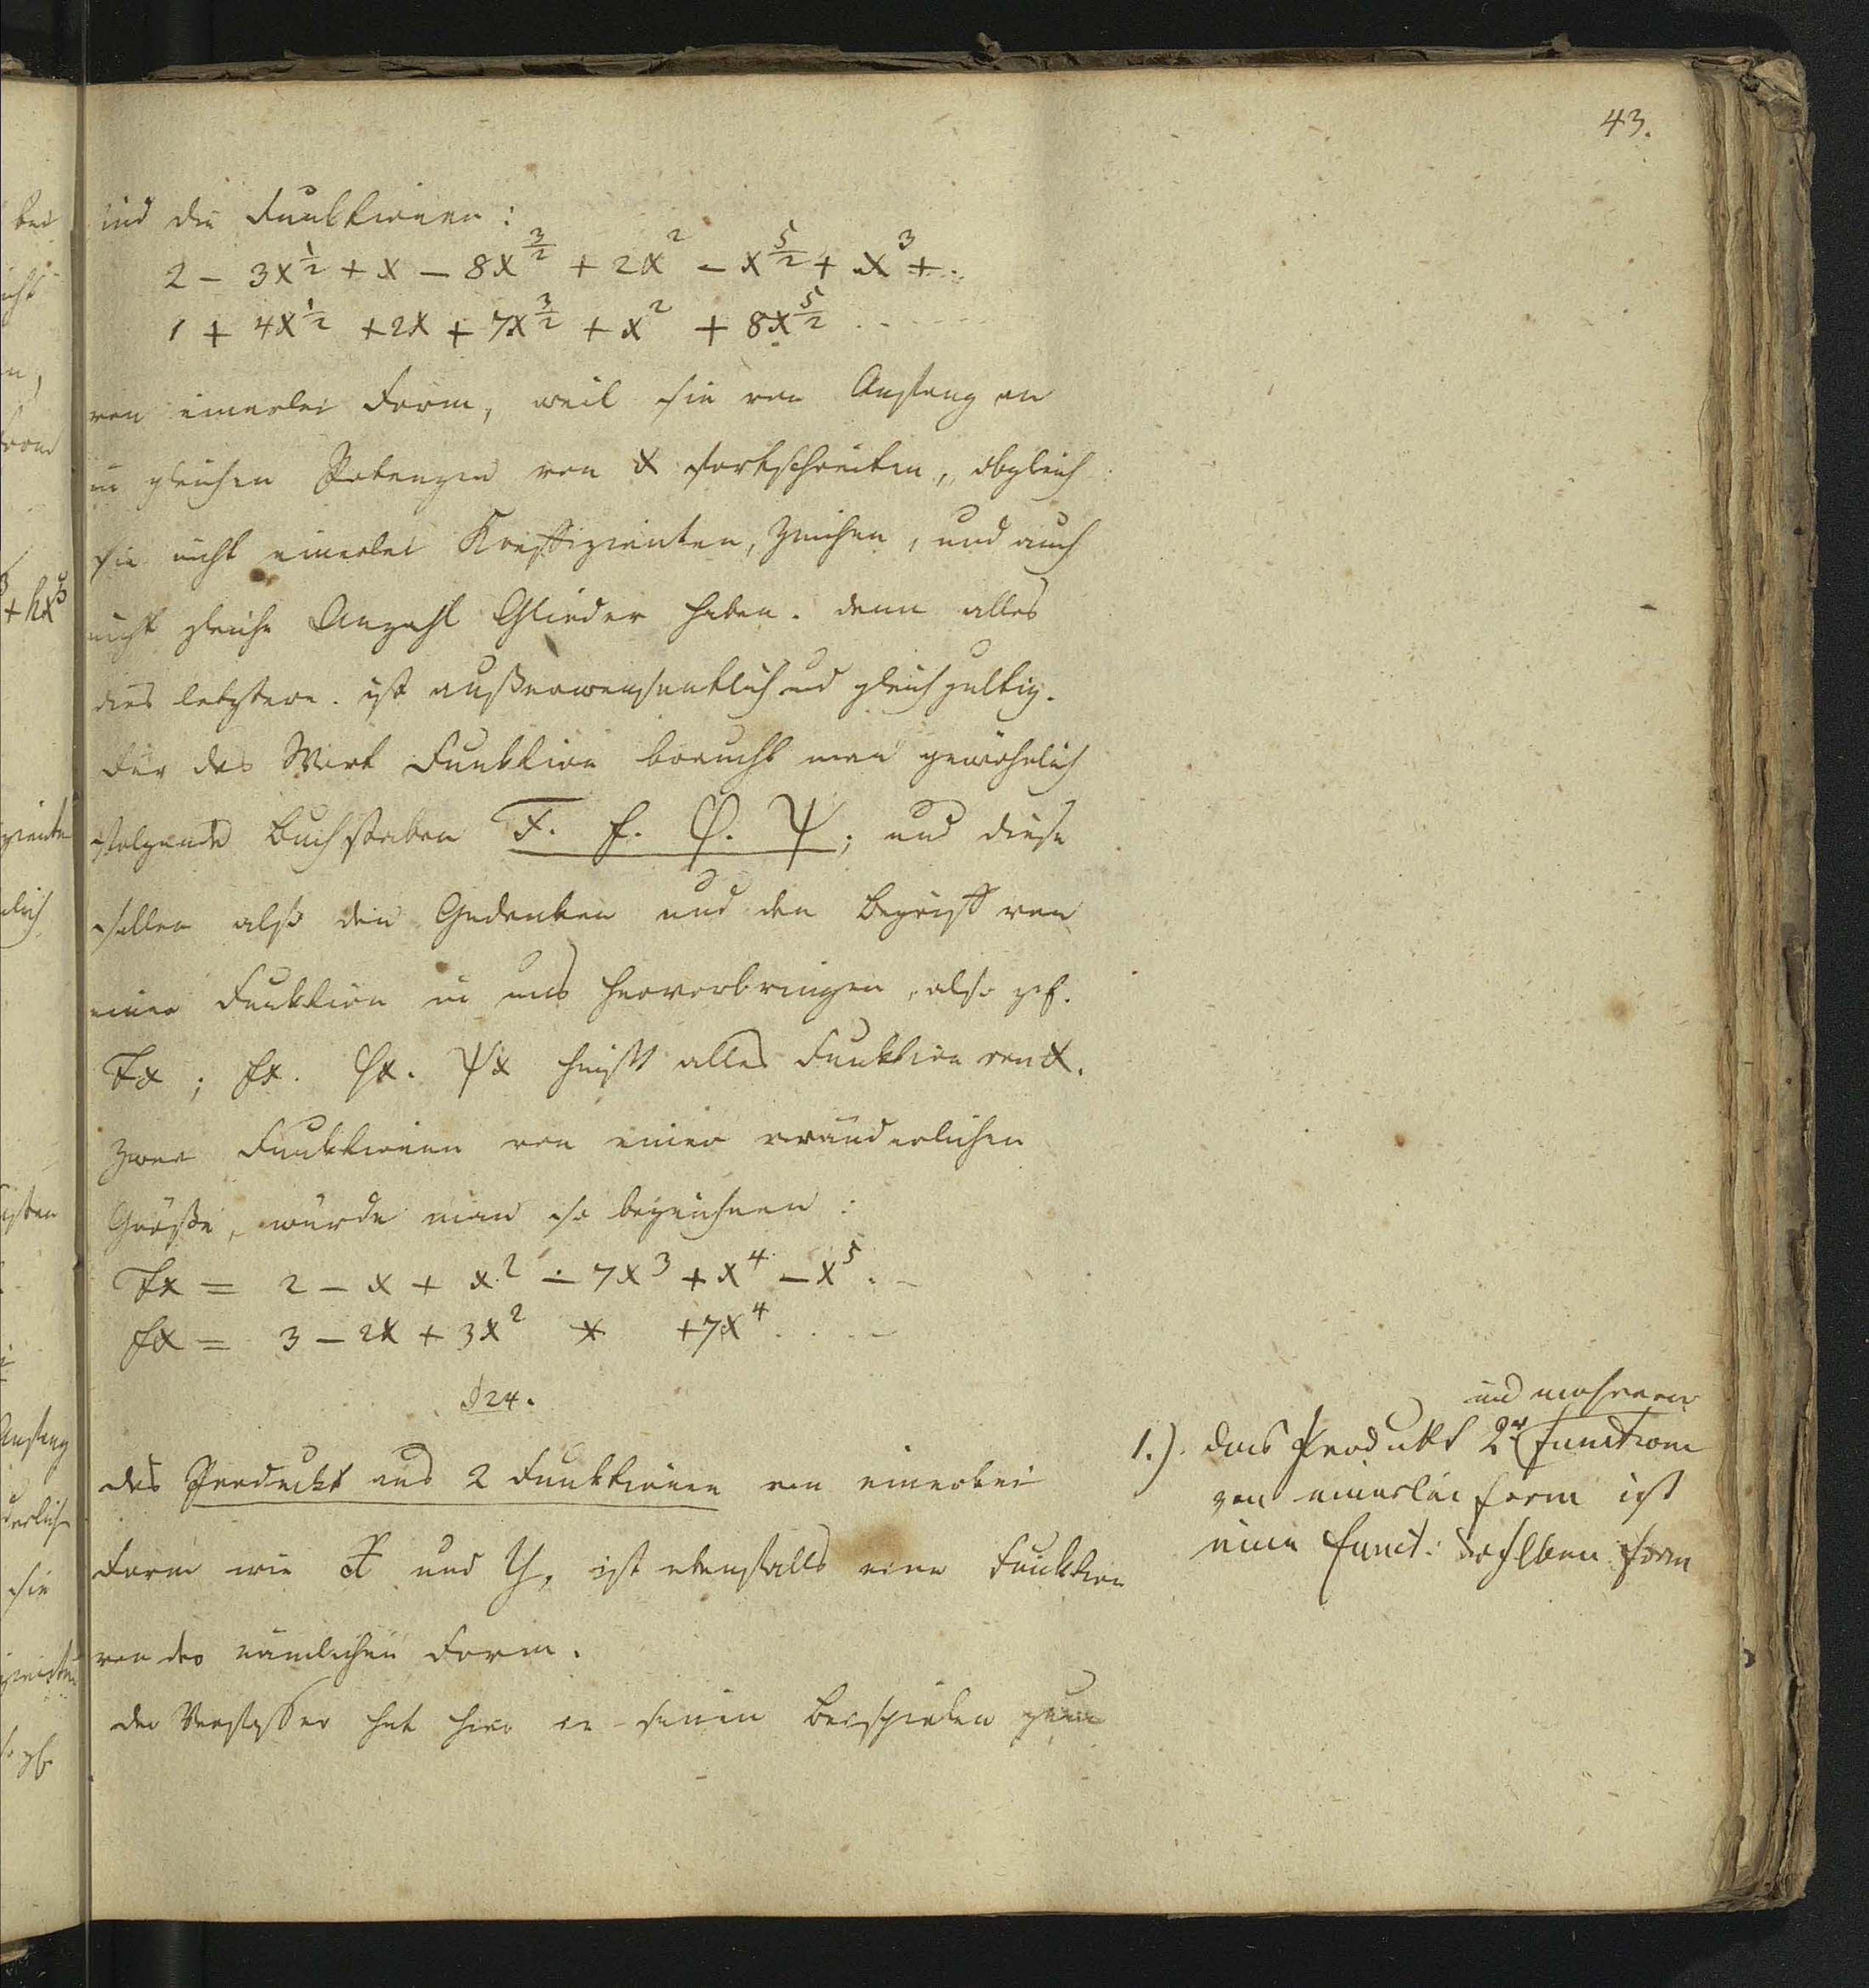 43.
sind die Funktionen:
2 - 3x^1/2 + x - 8x^3/2 + 2x^2 - x^5/2 + x^3 + ..
1 + 4x^1/2 + 2x + 7x^3/2 + x^2 + 8x^5/2 . . . .
von einerlei Form, weil sie von Anfang an
in gleichen Potenzen von x fortschreiten, obgleich
sie nicht einerlei Koeffizienten, Zeichen, und auch
nicht gleiche Anzahl Glieder haben. denn alles
dies letztere ist außerwesentlich und gleichgültig.
Für das Wort Funktion braucht man gewöhnlich
folgende Buchstaben F. f. φ. ψ; und diese
sollen also den Gedanken und den Begriff von
einer Funktion in uns hervorbringen, also
Fx; fx. φx. ψx heißt alles Funktion von x.
Zwei Funktionen von einer veränderlichen
Größe, würde man so bezeichnen:
Fx = 2 - x + x^2 - 7x^3 + x^4 - x^5 . -
fx = 3 - 2x + 3x^2 * + 7x^4 . . . -
§ 24.
das Produkt aus 2 Funktionen von einerlei
Form wie X und Y, ist ebenfalls eine Funktion
von der nämlichen Form.
der Verfasser hat hier in seinen Beispielen
und mehrerer
1.). das Produkt 2er Functionen
von einerlei Form ist
eine Funct: derselben Form